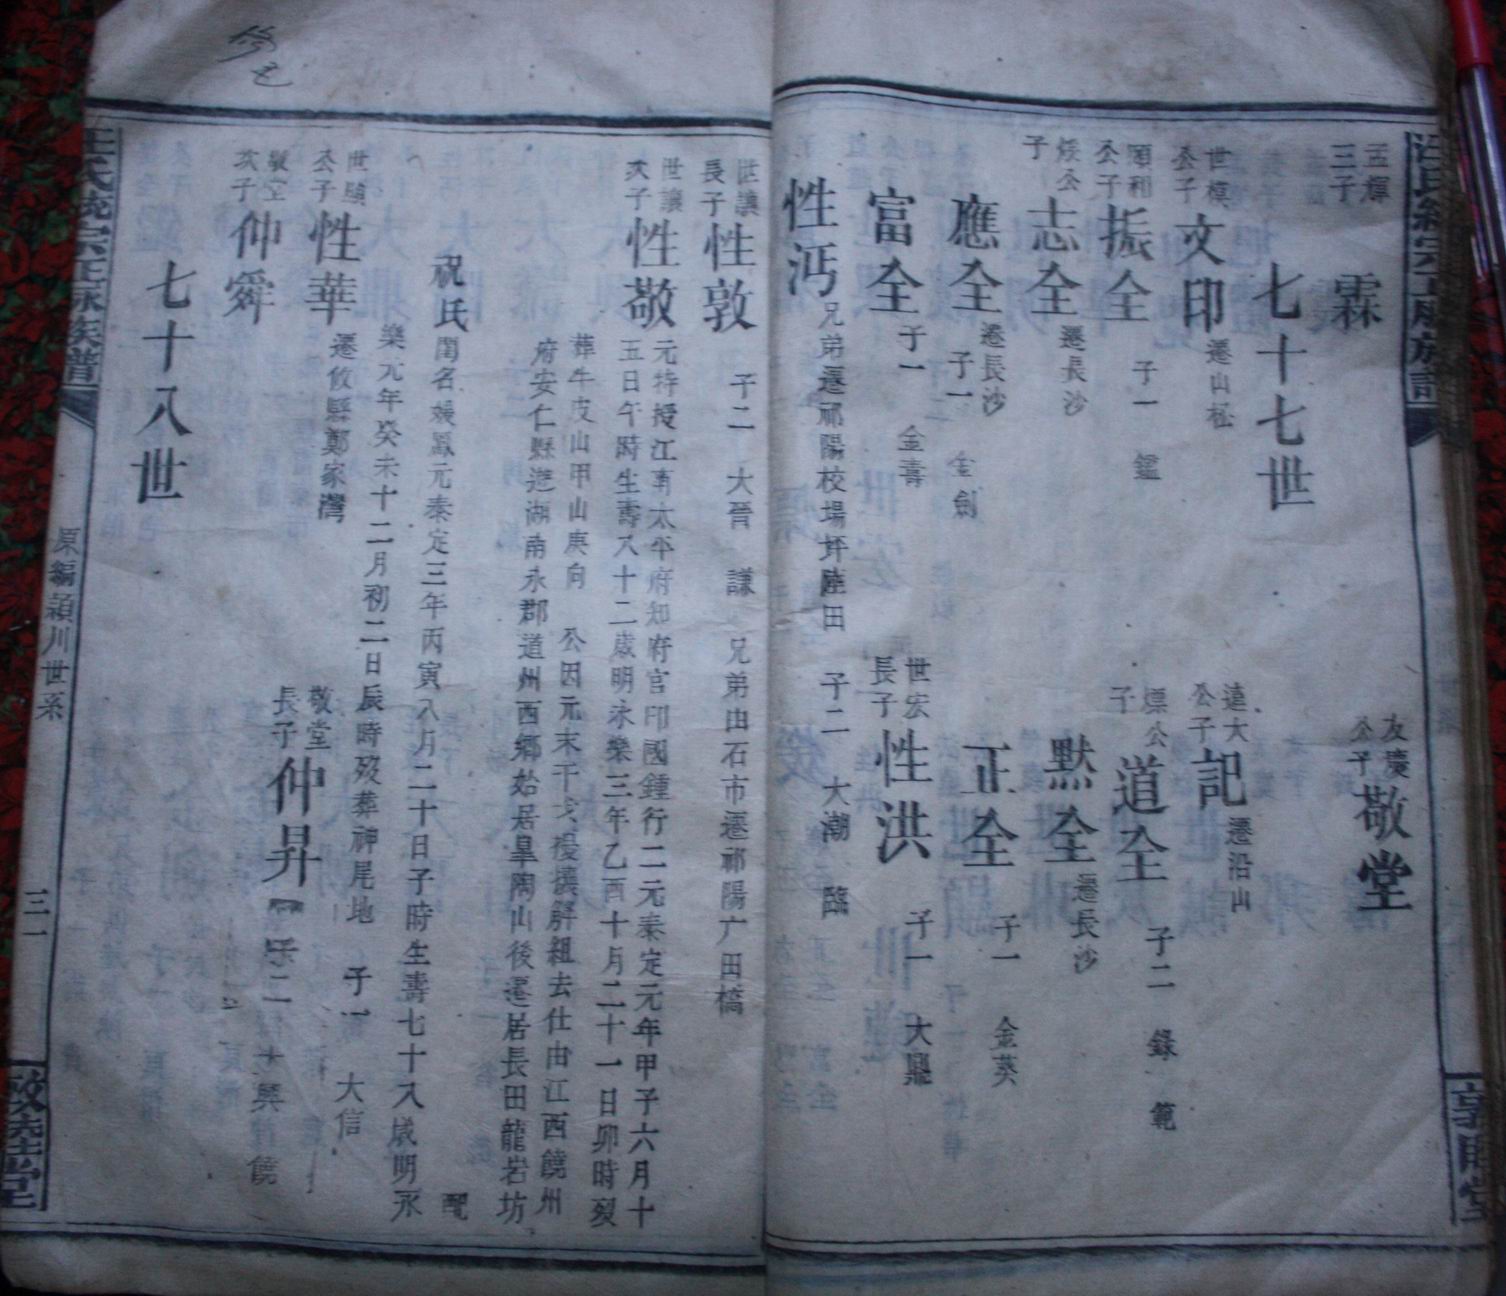 汪氏統宗正脉族譜
孟輝三子 霖
友慶公子 敬堂
七十七世
世模公子 文印 遷山松
達大公子 記 遷沿山
願和公子 振全 子一 鑑
熛公子 道全 子二 錄 範
公子 志全 遷長沙
默全 遷長沙
應全 遷長沙 子一 金劍
正全 子一 金葵
富全 子一 金壽
世宏長子 性洪 子一 大鼎
性沔 兄弟遷祁陽校場坪陸田 子二 大潮 臨
敦睦堂
世讓長子 性敦 子二 大晉 謙 兄弟由石市遷祁陽广田橋
世讓次子 性敬 元特授江南太平府知府官印國鍾行二元泰定元年甲子六月十
五日午時生壽八十二歲明永樂三年乙酉十月二十一日卯時歿
葬牛皮山甲山庚向 公因元末干戈擾攘解組去仕由江西饒州
府安仁縣遊湖南永郡道州西鄉始居皐陶山後遷居長田龍岩坊
配
祝氏 閨名媛鳳元泰定三年丙寅八月二十日子時生壽七十八歲明永
樂元年癸未十二月初二日辰時歿葬神尾地 子一 大信
世顯公子 性華 遷攸縣鄭家灣
敬堂長子 仲昇 子二 大興 饒
敬堂次子 仲舜
七十八世
汪氏統宗正脉族譜
原編頴川世系
三一
敦睦堂